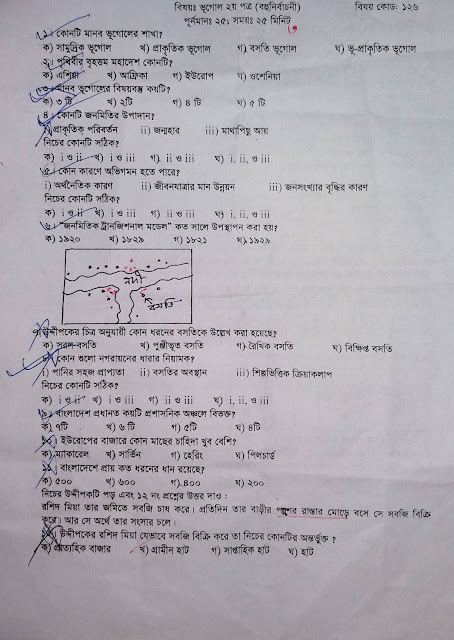 বিষয়ঃ ভূগোল ২য় পত্র (বহুনির্বাচনী) বিষয় কোড: ১২৬
পূর্নমানঃ ২৫; সময়ঃ ২৫ মিনিট
১। কোনটি মানব ভূগোলের শাখা?
ক) সামুদ্রিক ভূগোল খ) প্রাকৃতিক ভূগোল গ) বসতি ভূগোল ঘ) ভূ-প্রাকৃতিক ভূগোল
২। পৃথিবীর বৃহত্তম মহাদেশ কোনটি?
ক) এশিয়া খ) আফ্রিকা গ) ইউরোপ ঘ) ওশেনিয়া
৩। মানব ভূগোলের বিষয়বস্তু কয়টি?
ক) ৩ টি খ) ২টি গ) ৪ টি ঘ) ৫ টি
৪। কোনটি জনমিতির উপাদান?
i) প্রাকৃতিক পরিবর্তন ii) জন্মহার iii) মাথাপিছু আয়
নিচের কোনটি সঠিক?
ক) i ও ii খ) i ও iii গ) ii ও iii ঘ) i, ii, ও iii
৫। কোন কারণে অভিগমন হতে পারে?
i) অর্থনৈতিক কারণ ii) জীবনযাত্রার মান উন্নয়ন iii) জনসংখ্যার বৃদ্ধির কারণ
নিচের কোনটি সঠিক?
ক) i ও ii খ) i ও iii গ) ii ও iii ঘ) i, ii, ও iii
৬। "জনমিতিক ট্রানজিশনাল মডেল" কত সালে উপস্থাপন করা হয়?
ক) ১৯২০ খ) ১৮২৯ গ) ১৮২১ ঘ) ১৯২৯
নদী
বসতি
৭। উদ্দীপকের চিত্র অনুযায়ী কোন ধরনের বসতিকে উল্লেখ করা হয়েছে?
ক) সরল-বসতি খ) পুঞ্জীভূত বসতি গ) রৈখিক বসতি ঘ) বিক্ষিপ্ত বসতি
৮। কোন গুলো নগরায়নের ধারার নিয়ামক?
i) পানির সহজ প্রাপ্যতা ii) বসতির অবস্থান iii) শিল্পভিত্তিক ক্রিয়াকলাপ
নিচের কোনটি সঠিক?
ক) i ও ii খ) i ও iii গ) ii ও iii ঘ) i, ii, ও iii
৯। বাংলাদেশ প্রধানত কয়টি প্রশাসনিক অঞ্চলে বিভক্ত?
ক) ৭টি খ) ৬ টি গ) ৫টি ঘ) ৪টি
১০। ইউরোপের বাজারে কোন মাছের চাহিদা খুব বেশি?
ক) ম্যাকারেল খ) সার্ডিন গ) হেরিং ঘ) পিলচার্ড
১১। বাংলাদেশে প্রায় কত ধরনের ধান রয়েছে?
ক) ৫০০ খ) ৬০০ গ) ৪০০ ঘ) ২০০
নিচের উদ্দীপকটি পড় এবং ১২ নং প্রশ্নের উত্তর দাও :
রশিদ মিয়া তার জমিতে সবজি চাষ করে। প্রতিদিন তার বাড়ীর পাশের রাস্তার মোড়ে বসে সে সবজি বিক্রি
করে। আর সে অর্থে তার সংসার চলে।
১২। উদ্দীপকের রশিদ মিয়া যেভাবে সবজি বিক্রি করে তা নিচের কোনটির অন্তর্ভুক্ত ?
ক) প্রাত্যহিক বাজার খ) গ্রামীন হাট গ) সাপ্তাহিক হাট ঘ) হাট